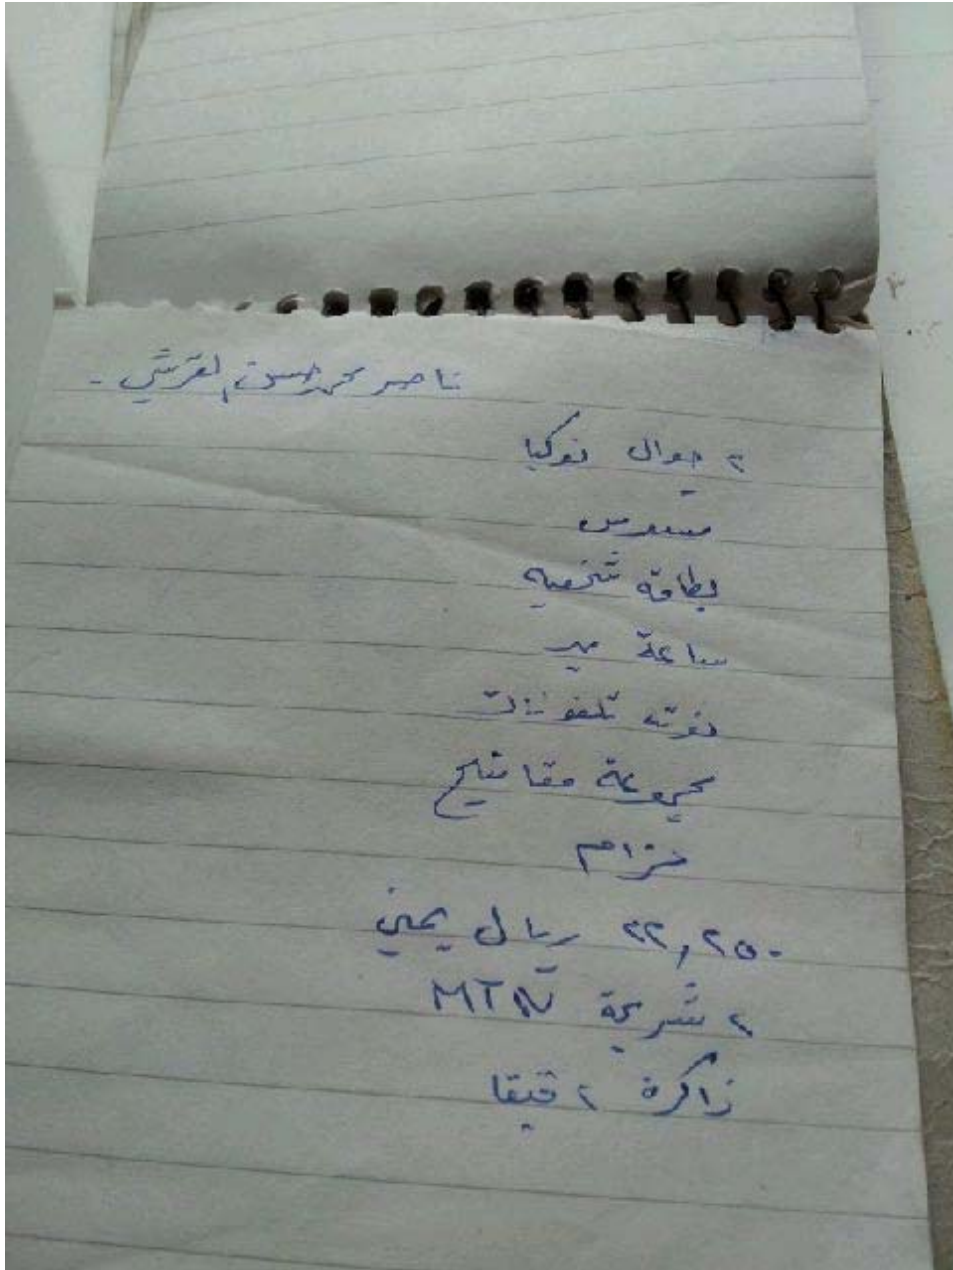 ناصر محمد حسن القرشي -
٢ جوال نوكيا
مسدس
بطاقة شخصيه
ساعة يد
نوته تلفونات
مجموعة مفاتيح
حزام
٢٢,٢٥٠ ريال يمني
٢ شريحة MTN
ذاكرة ٢ قيقا